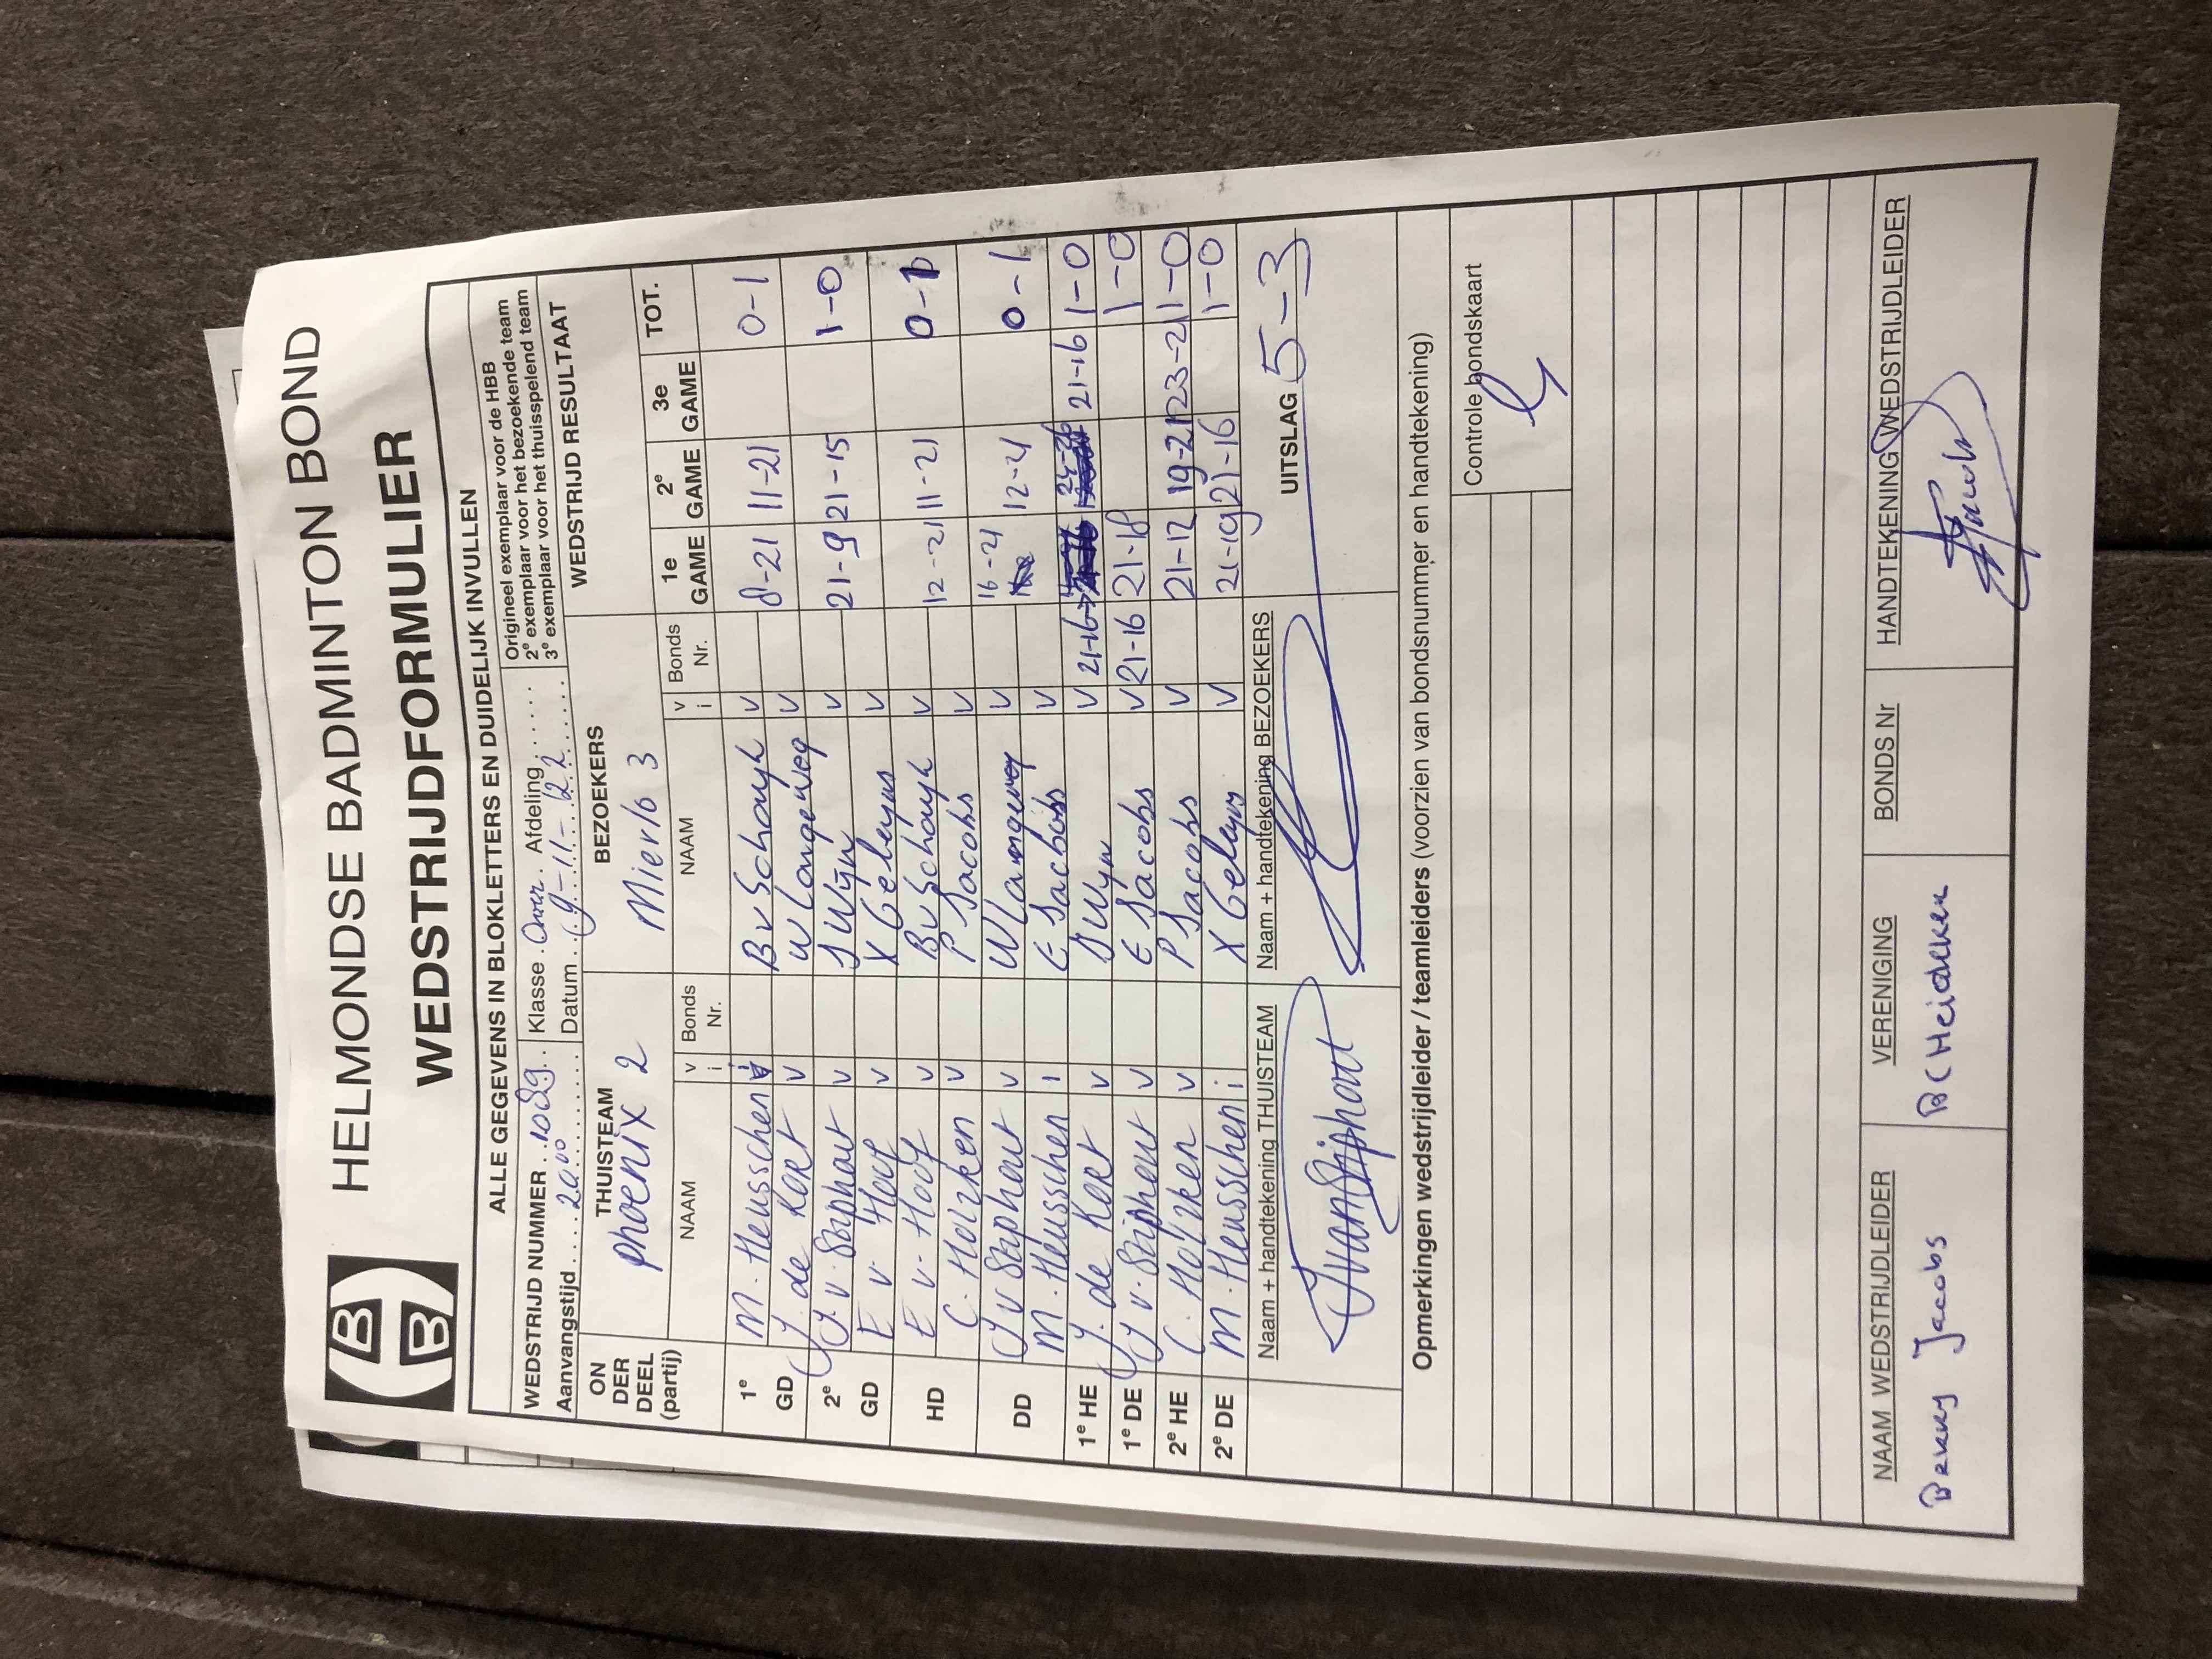 HELMONDSE BADMINTON BOND
WEDSTRIJDFORMULIER
ALLE GEGEVENS IN BLOKLETTERS EN DUIDELIJK INVULLEN
WEDSTRIJD NUMMER ..1089.. Klasse . Over . Afdeling . . . . . .
Aanvangstijd . . . . 20⁰⁰ . . . . . . . . Datum . . 9-11-22 . . . . . .
Origineel exemplaar voor de HBB
2e exemplaar voor het bezoekende team
3e exemplaar voor het thuisspelend team
ON DER DEEL (partij) THUISTEAM BEZOEKERS WEDSTRIJD RESULTAAT
phoenix 2 Mierlo 3
NAAM v i Bonds Nr. NAAM v i Bonds Nr. 1e GAME 2e GAME 3e GAME TOT.
1e GD M. Heusschen i B v Schayk v 8-21 11-21 0-1
J. de Kort v W Langeweg v
2e GD J. v. Stiphout v J Wijn v 21-9 21-15 1-0
E v. Hoof v X Geleyns v
HD E v. Hoof v B v Schayk v 12-21 11-21 0-1
C. Holzken v P Jacobs v
DD J v Stiphout v W Langeweg v 16-21 12-21 0-1
M. Heusschen i E Jacobs v
1e HE J. de Kort v J Wijn v 21-16 21-16 1-0
1e DE J v. Stiphout v E Jacobs v 21-16 21-18 1-0
2e HE C. Holzken v P Jacobs v 21-12 19-21 23-21 1-0
2e DE M. Heusschen i X Geleyns v 21-19 21-16 1-0
Naam + handtekening THUISTEAM Naam + handtekening BEZOEKERS UITSLAG 5-3
JvanStiphout
Opmerkingen wedstrijdleider / teamleiders (voorzien van bondsnummer en handtekening)
Controle bondskaart
NAAM WEDSTRIJDLEIDER VERENIGING BONDS Nr HANDTEKENING WEDSTRIJDLEIDER
Benny Jacobs BC Heidekken